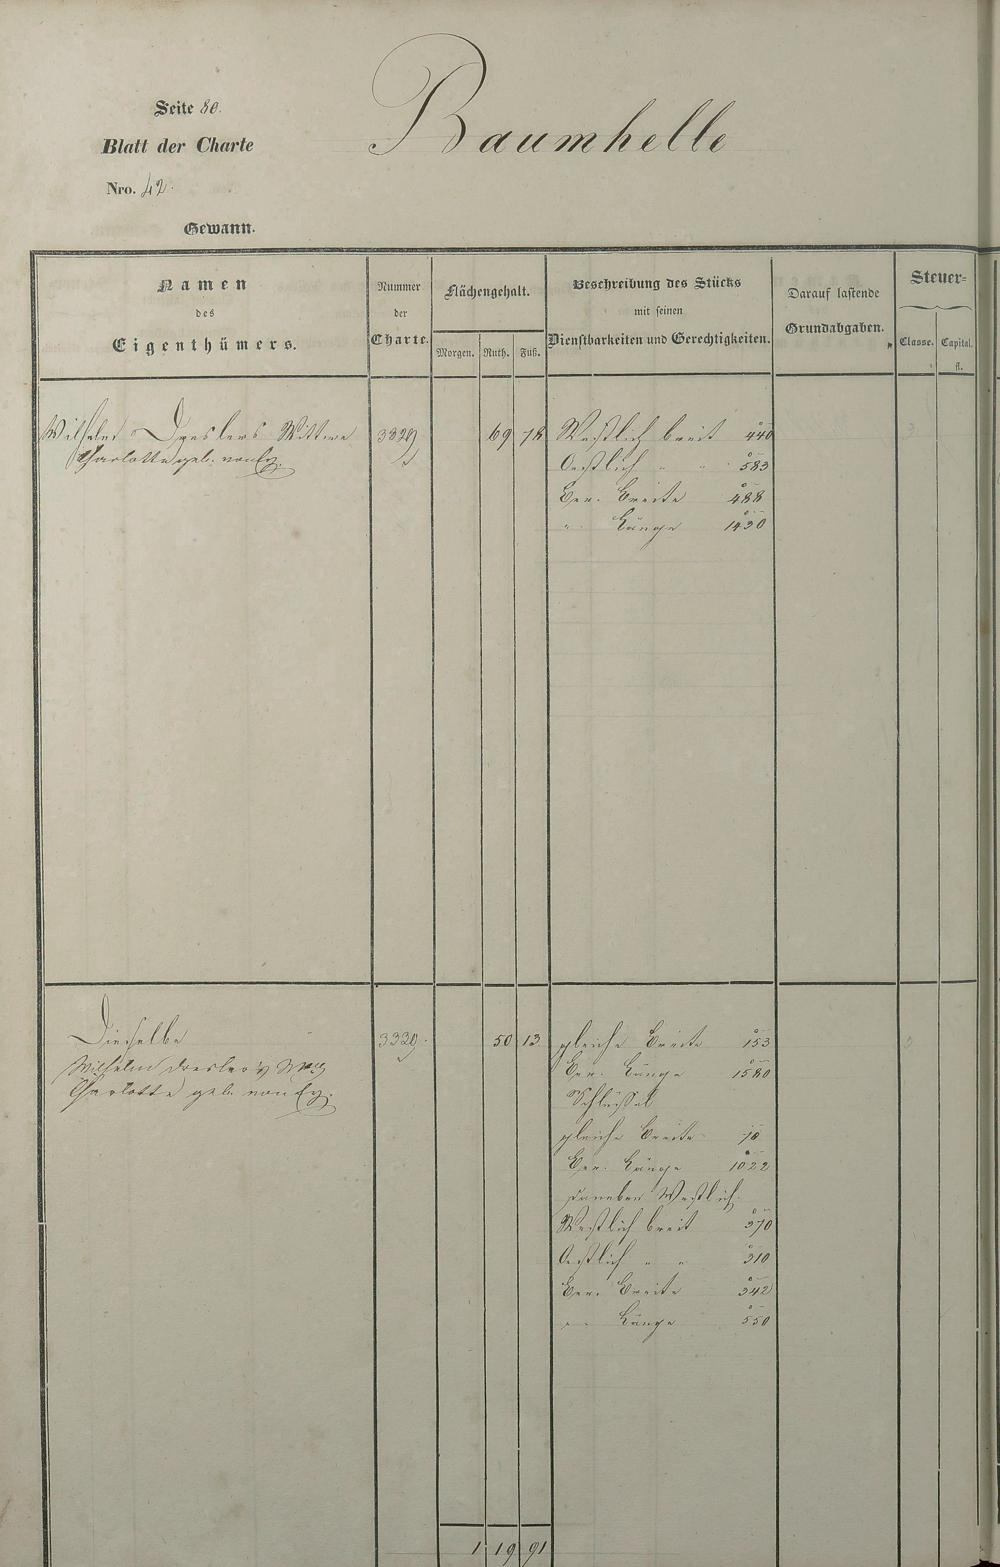 Seite 80.
Baumhelle
Blatt der Charte
Nro. 42.
Gewann.
Namen
des
Eigenthümers.
Nummer
der
Charte.
Flächengehalt.
Morgen. Ruth. Fuß.
Beschreibung des Stücks
mit seinen
Dienstbarkeiten und Gerechtigkeiten.
Darauf lastende
Grundabgaben.
Steuer-
Classe. Capital.
fl.
Wilhelm Dreslers Wittwe 69 78 Westlich breit 440
Charlotte geb. von Ey. Oestlich " " 583
Ber. Breite 488
" Länge 1430
Dieselbe 50 13 gleiche Breite 153
Wilhelm Dresler's Ber. Länge 1580
Charlotte geb. von Ey. Schlüssel
gleiche Breite 70
Ber. Länge 1022
daneben Westlich
Westlich breit 370
Oestlich " " 310
Ber. Breite 342
" Länge 550
1 19 91